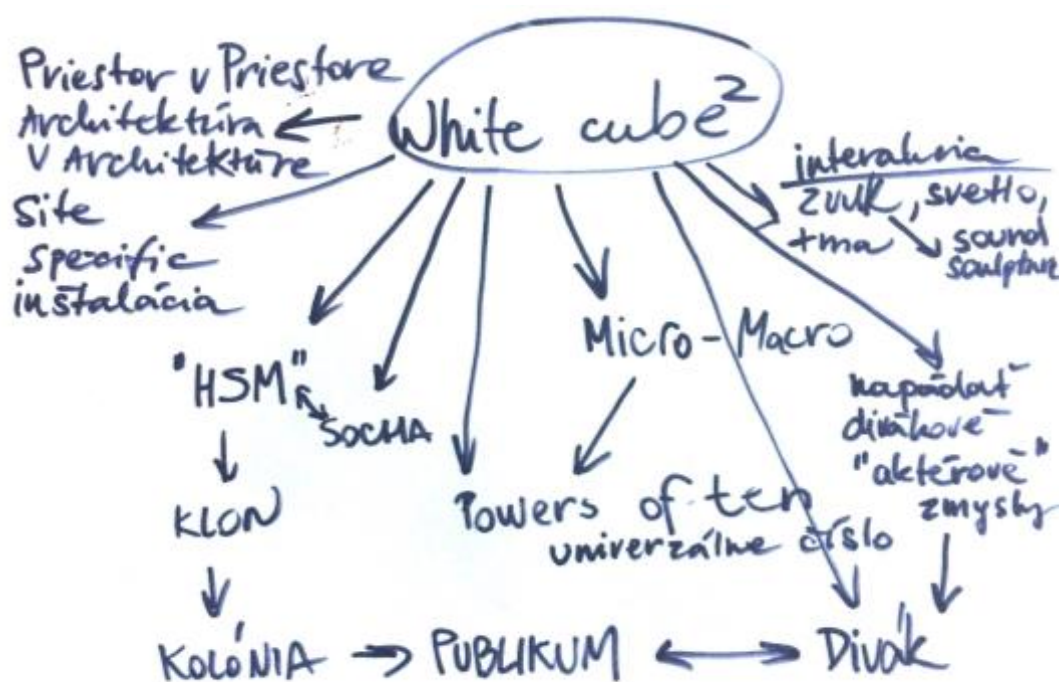 White cube²
Priestor v Priestore
Architektúra
v Architektúre
Site
specific
inštalácia
interakcia
zvuk, svetlo,
tma
sound
sculpture
"HSM"
SOCHA
KLON
KOLÓNIA
Micro-Macro
Powers of ten
univerzálne číslo
napádať
divákové
"aktérové"
zmysly
PUBLIKUM
Divák